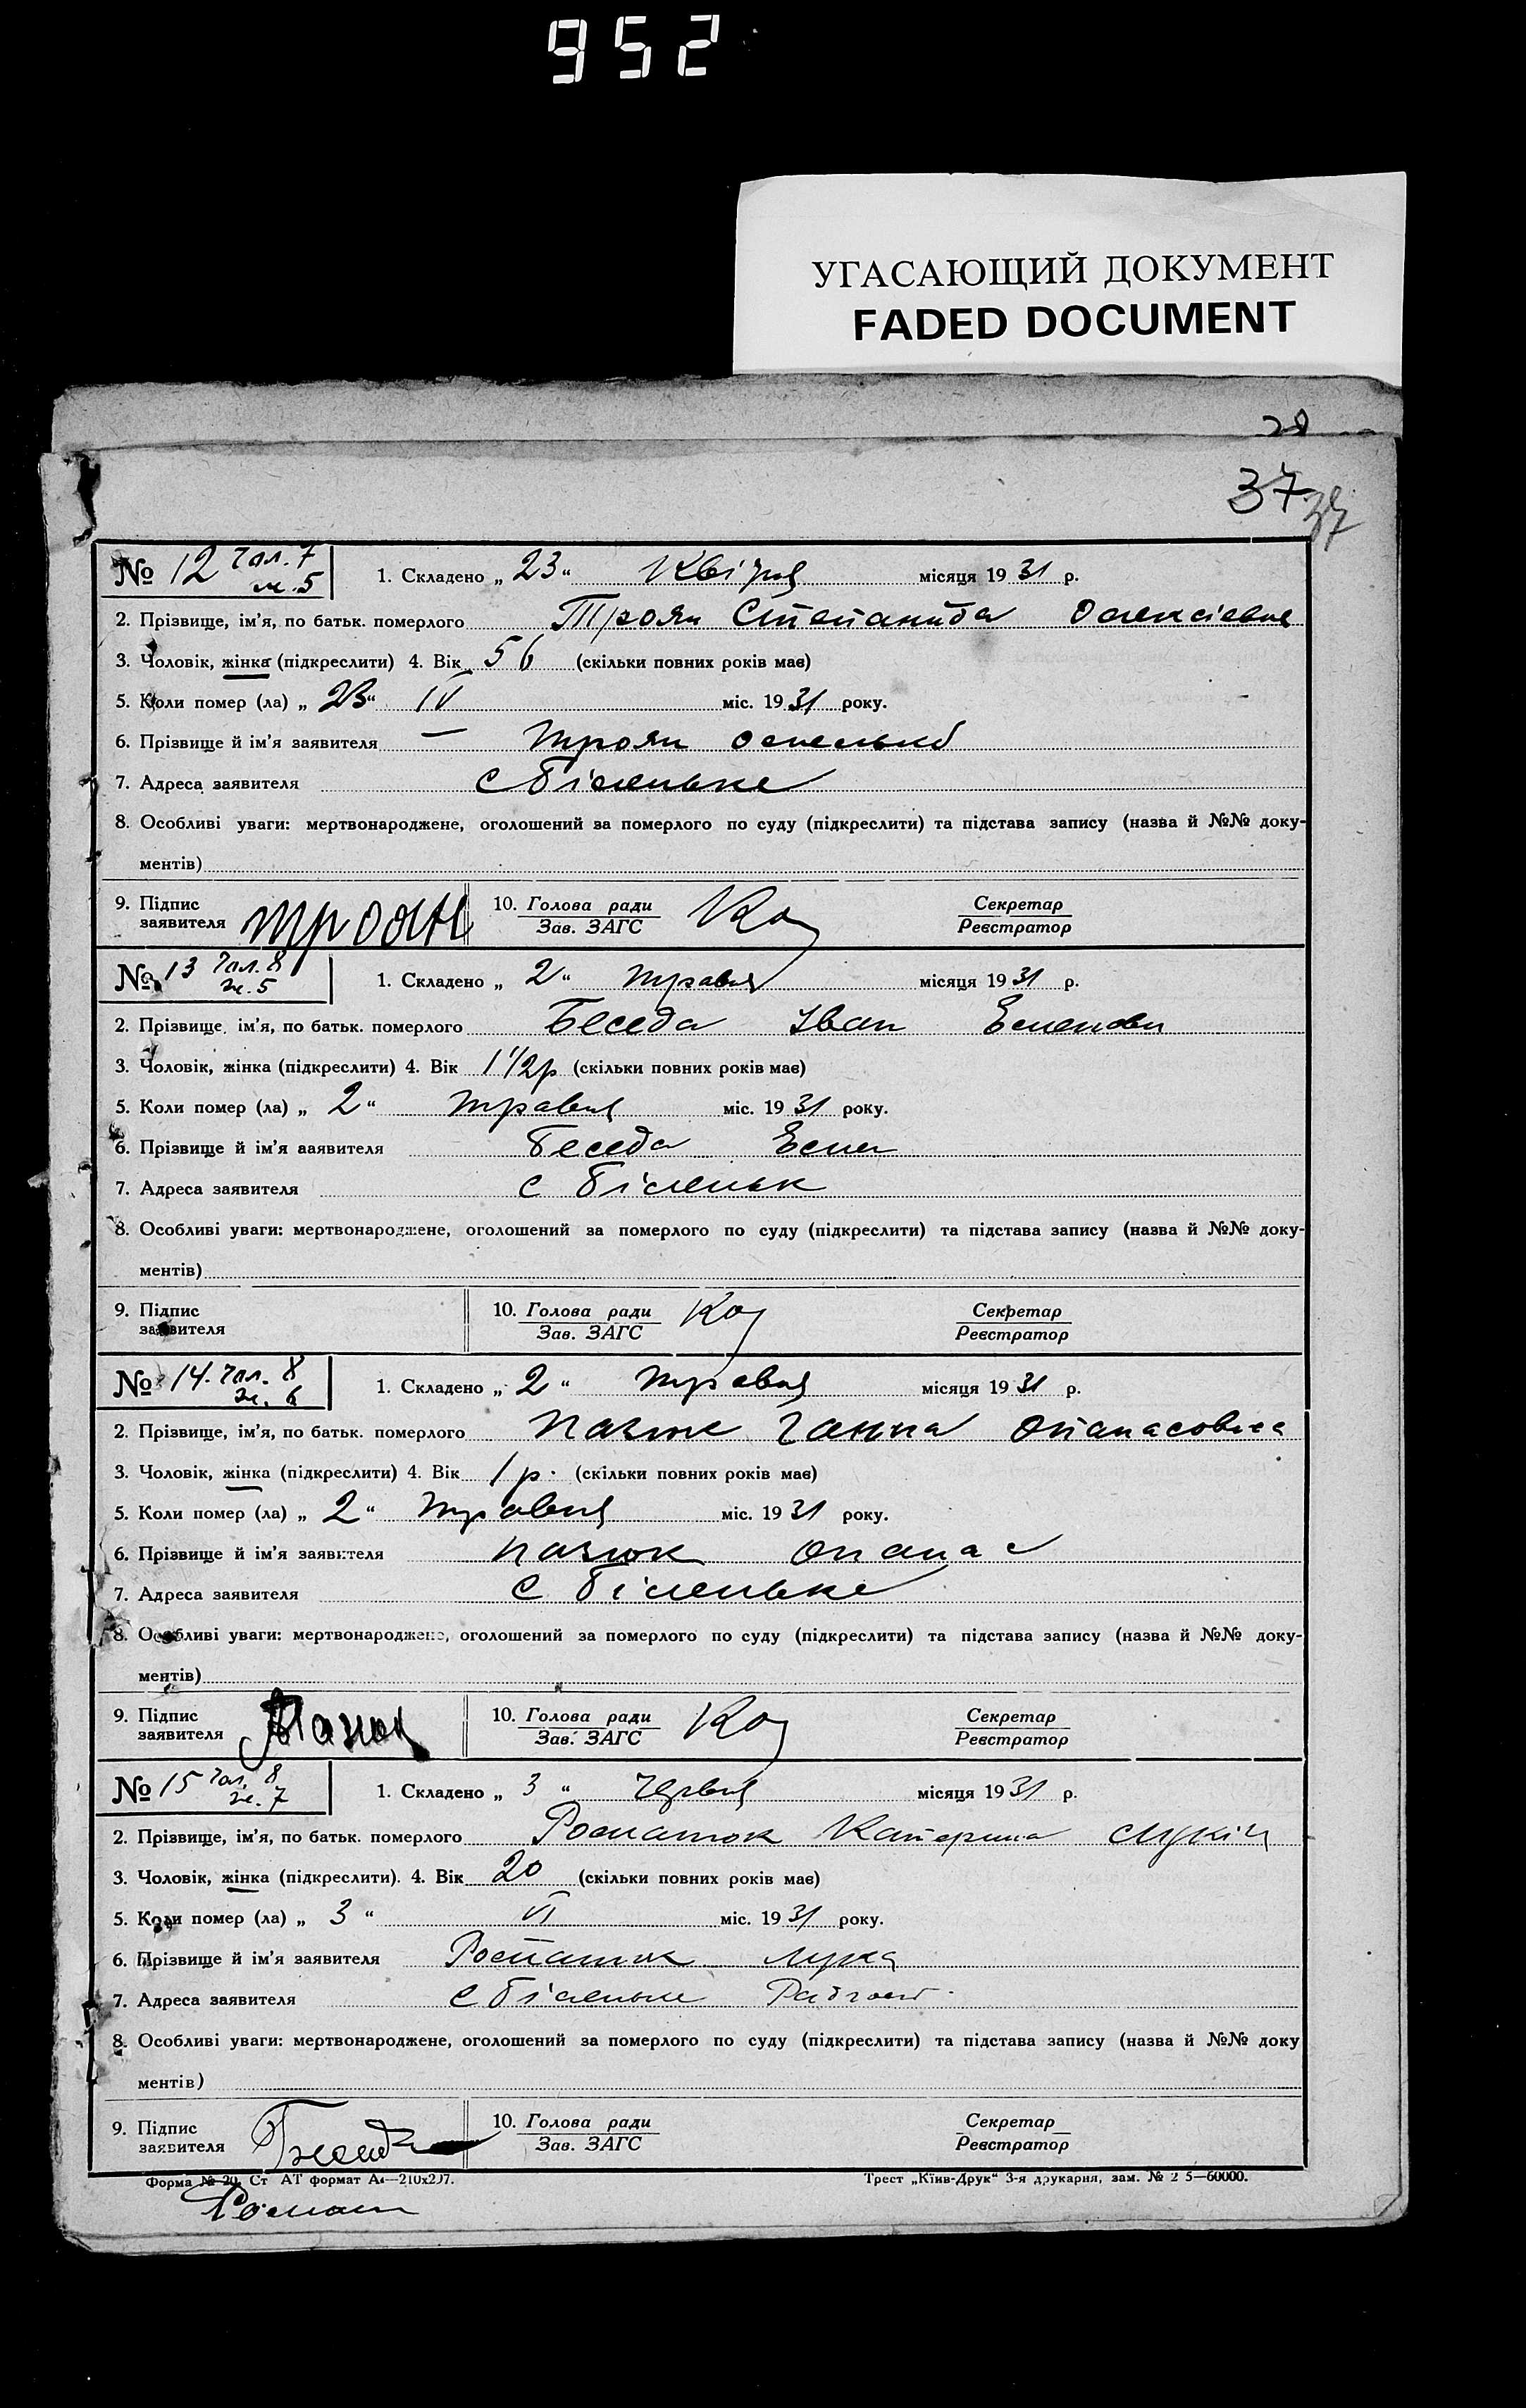 952
УГАСАЮЩИЙ ДОКУМЕНТ
FADED DOCUMENT
37
37
№ 12 чол. 7
ж. 5
1. Складено „ 23 “ Квітня місяця 1931 р.
2. Прізвище, ім'я, по батьк. померлого Троян Степанида
3. Чоловік, жінка (підкреслити) 4. Вік 56 (скільки повних років має)
5. Коли помер (ла) „ 23 “ IV міс. 1931 року.
6. Прізвище й ім'я заявителя — Троян
7. Адреса заявителя с Біленьке
8. Особливі уваги: мертвонароджене, оголошений за померлого по суду (підкреслити) та підстава запису (назва й №№ доку-
ментів)
9. Підпис заявителя Троян 10. Голова ради Зав. ЗАГС Секретар Реєстратор
№ 13 чол. 8
ж. 5
1. Складено „ 2 “ травня місяця 1931 р.
2. Прізвище, ім'я, по батьк. померлого Беседа Іван
3. Чоловік, жінка (підкреслити) 4. Вік 1 1/2 р (скільки повних років має)
5. Коли помер (ла) „ 2 “ травня міс. 1931 року.
6. Прізвище й ім'я заявителя Беседа
7. Адреса заявителя с Біленьк
8. Особливі уваги: мертвонароджене, оголошений за померлого по суду (підкреслити) та підстава запису (назва й №№ доку-
ментів)
9. Підпис заявителя 10. Голова ради Зав. ЗАГС Секретар Реєстратор
№ 14 чол. 8
ж. 6
1. Складено „ 2 “ травня місяця 1931 р.
2. Прізвище, ім'я, по батьк. померлого Пазюк Ганна Опанасовна
3. Чоловік, жінка (підкреслити) 4. Вік 1 р. (скільки повних років має)
5. Коли помер (ла) „ 2 “ травня міс. 1931 року.
6. Прізвище й ім'я заявителя Пазюк Опанас
7. Адреса заявителя с Біленьке
8. Особливі уваги: мертвонароджене, оголошений за померлого по суду (підкреслити) та підстава запису (назва й №№ доку-
ментів)
9. Підпис заявителя Пазюк 10. Голова ради Зав. ЗАГС Секретар Реєстратор
№ 15 чол. 8
ж. 7
1. Складено „ 3 “ червня місяця 1931 р.
2. Прізвище, ім'я, по батьк. померлого Катерина
3. Чоловік, жінка (підкреслити). 4. Вік 20 (скільки повних років має)
5. Коли помер (ла) „ 3 “ VI міс. 1931 року.
6. Прізвище й ім'я заявителя Лука
7. Адреса заявителя с Біленьке
8. Особливі уваги: мертвонароджене, оголошений за померлого по суду (підкреслити) та підстава запису (назва й №№ доку
ментів)
9. Підпис заявителя 10. Голова ради Зав. ЗАГС Секретар Реєстратор
Форма № 20. Ст АТ формат А4—210х297. Трест „Київ-Друк“ 3-я друкарня, зам. № 2 5—60000.